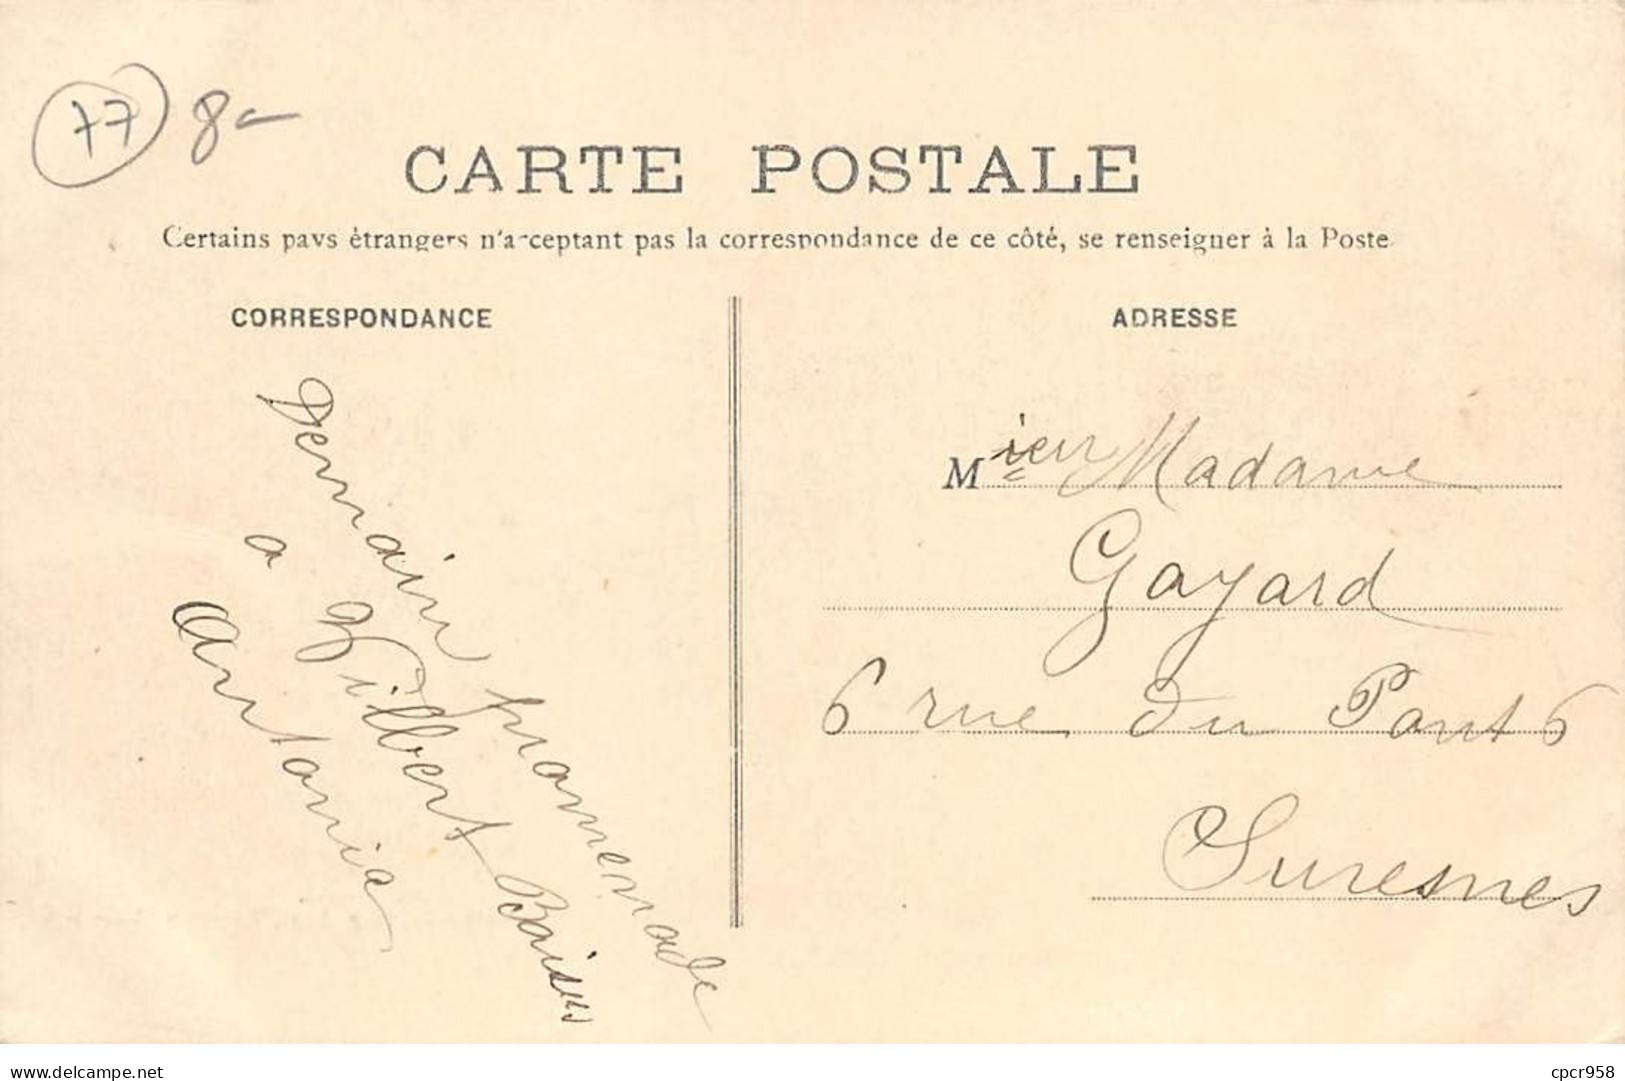 77 8-
CARTE POSTALE
Certains pays étrangers n'acceptant pas la correspondance de ce côté, se renseigner à la Poste
CORRESPONDANCE
Demain promenade
a Gilbert Baisers
Antonia
ADRESSE
Mieur Madame
Gayard
6 rue du Pont 6
Suresnes
www.delcampe.net
cpcr958